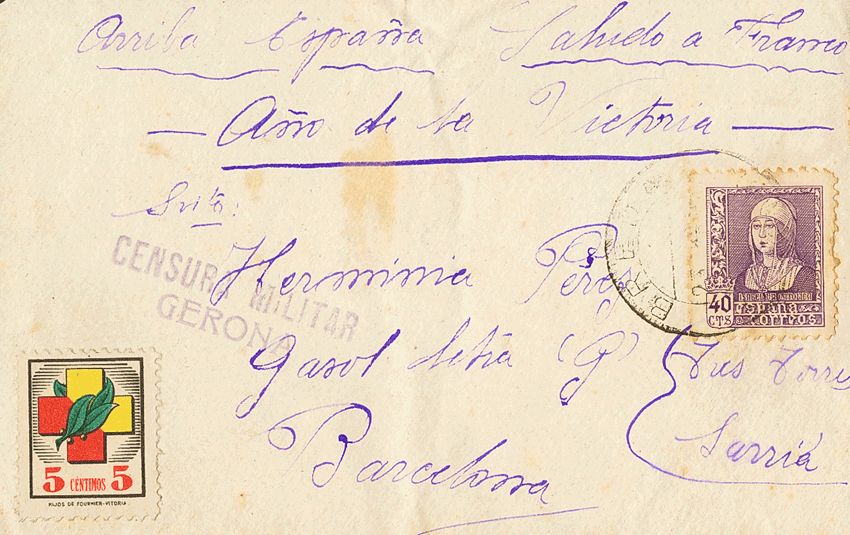 Arriba España Saludo a Franco
— Año de la Victoria —
Srita:
Herminia Pérez
Gasol letra (G) Tres Torres
Sarriá
Barcelona
CENSURA MILITAR
GERONA
40
CTS
ISABEL LA CATOLICA
España
correos
5 CÉNTIMOS 5
HIJOS DE FOURNIER-VITORIA